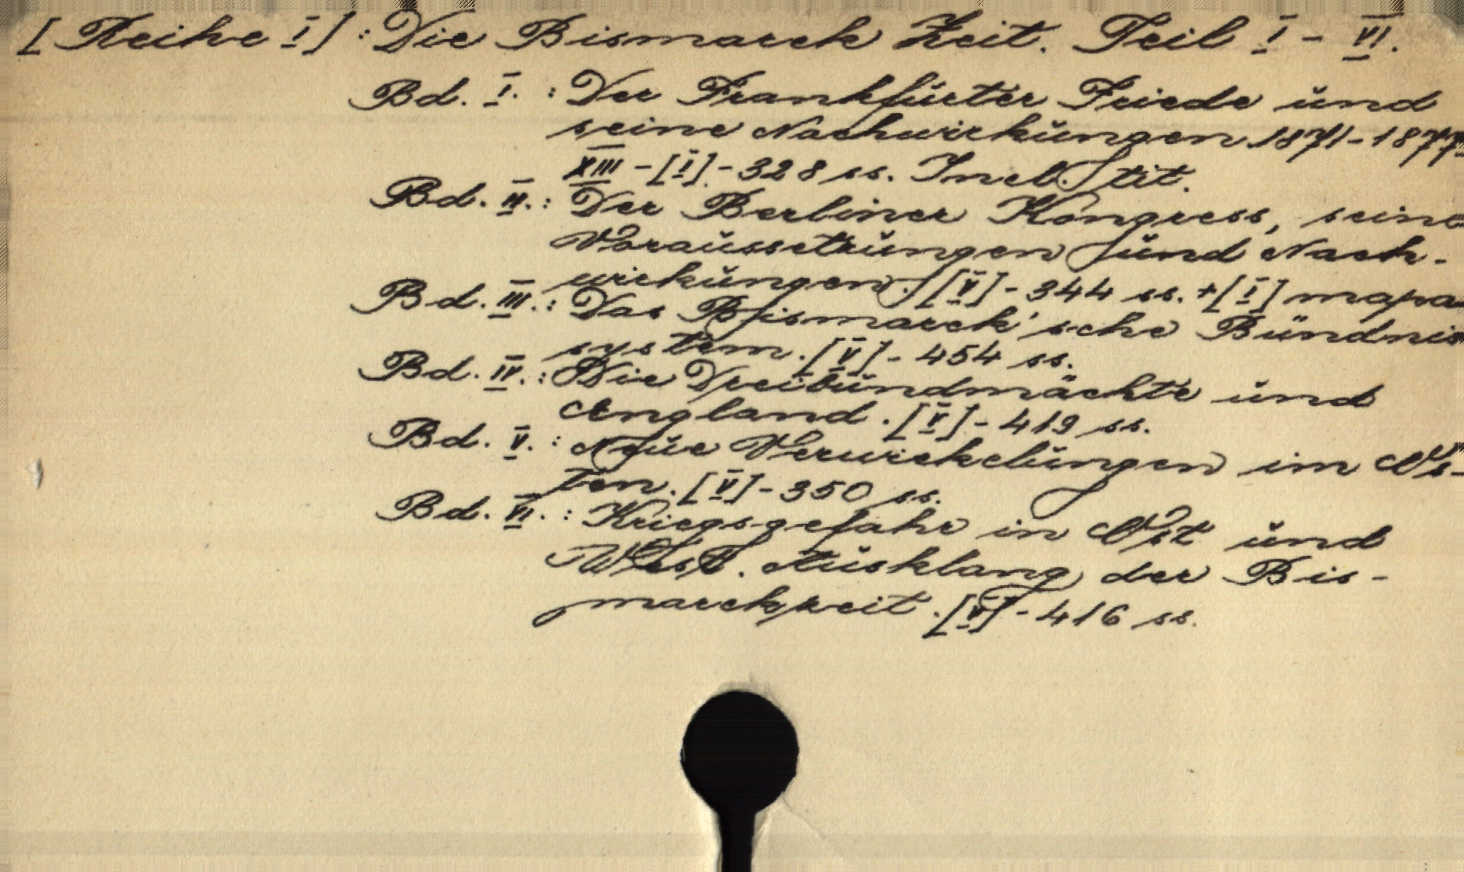 [Reihe I]: Die Bismarck Zeit. Teil I - VI.
Bd. I. : Der Frankfŭrter Friede ŭnd
seine Nachwirkŭngen 1871-1877.
XIII - [I] - 328 ss. Incl. tit.
Bd. II. : Der Berliner Kongress, seine
Voraŭssetzŭngen ŭnd Nach-
wirkŭngen. [V] - 344 ss. + [I] mapa
Bd. III. : Das Bismarck'sche Bündnis
system. [V] - 454 ss.
Bd. IV. : Die Dreibŭndmächte ŭnd
England. [V] - 419 ss.
Bd. V. : Neŭe Verwickelŭngen im Os-
ten. [V] - 350 ss.
Bd. VI. : Kriegsgefahr in Ost ŭnd
West. Aŭsklang der Bis-
marckzeit. [V] - 416 ss.